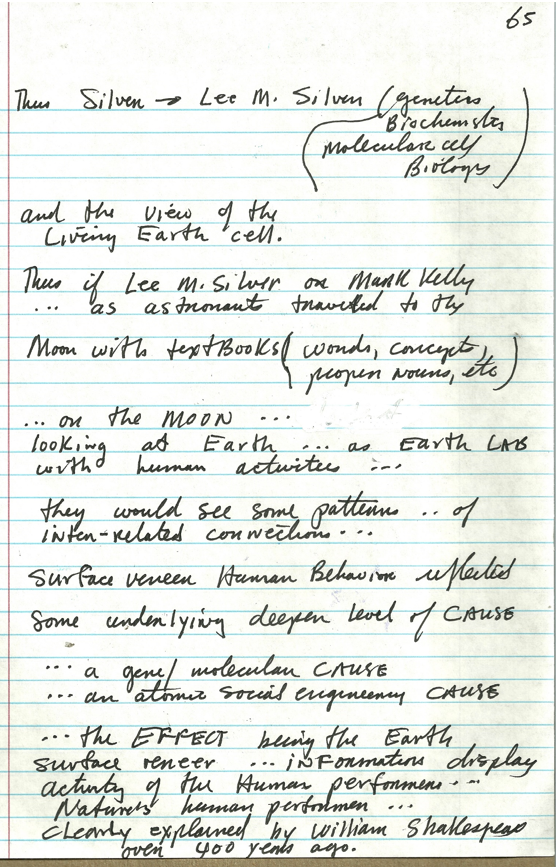 65
Thus Silver → Lee M. Silver (genetics
Biochemistry
molecular cell
Biology)
and the view of the
Living Earth cell.
Thus if Lee M. Silver or Mark Kelly
... as astronauts travelled to the
Moon with textBooks (words, concepts,
proper nouns, etc)
... on the MOON ...
looking at Earth ... as Earth LAB
with human activities ...
they would see some patterns .. of
inter-related connections ...
Surface veneer Human Behavior reflected
some underlying deeper level of CAUSE
... a gene/molecular CAUSE
... an atomic social engineering CAUSE
... the EFFECT being the Earth
surface veneer ... information display
activity of the Human performers ...
Nature's human performer ...
clearly explained by William Shakespeare
over 400 years ago.